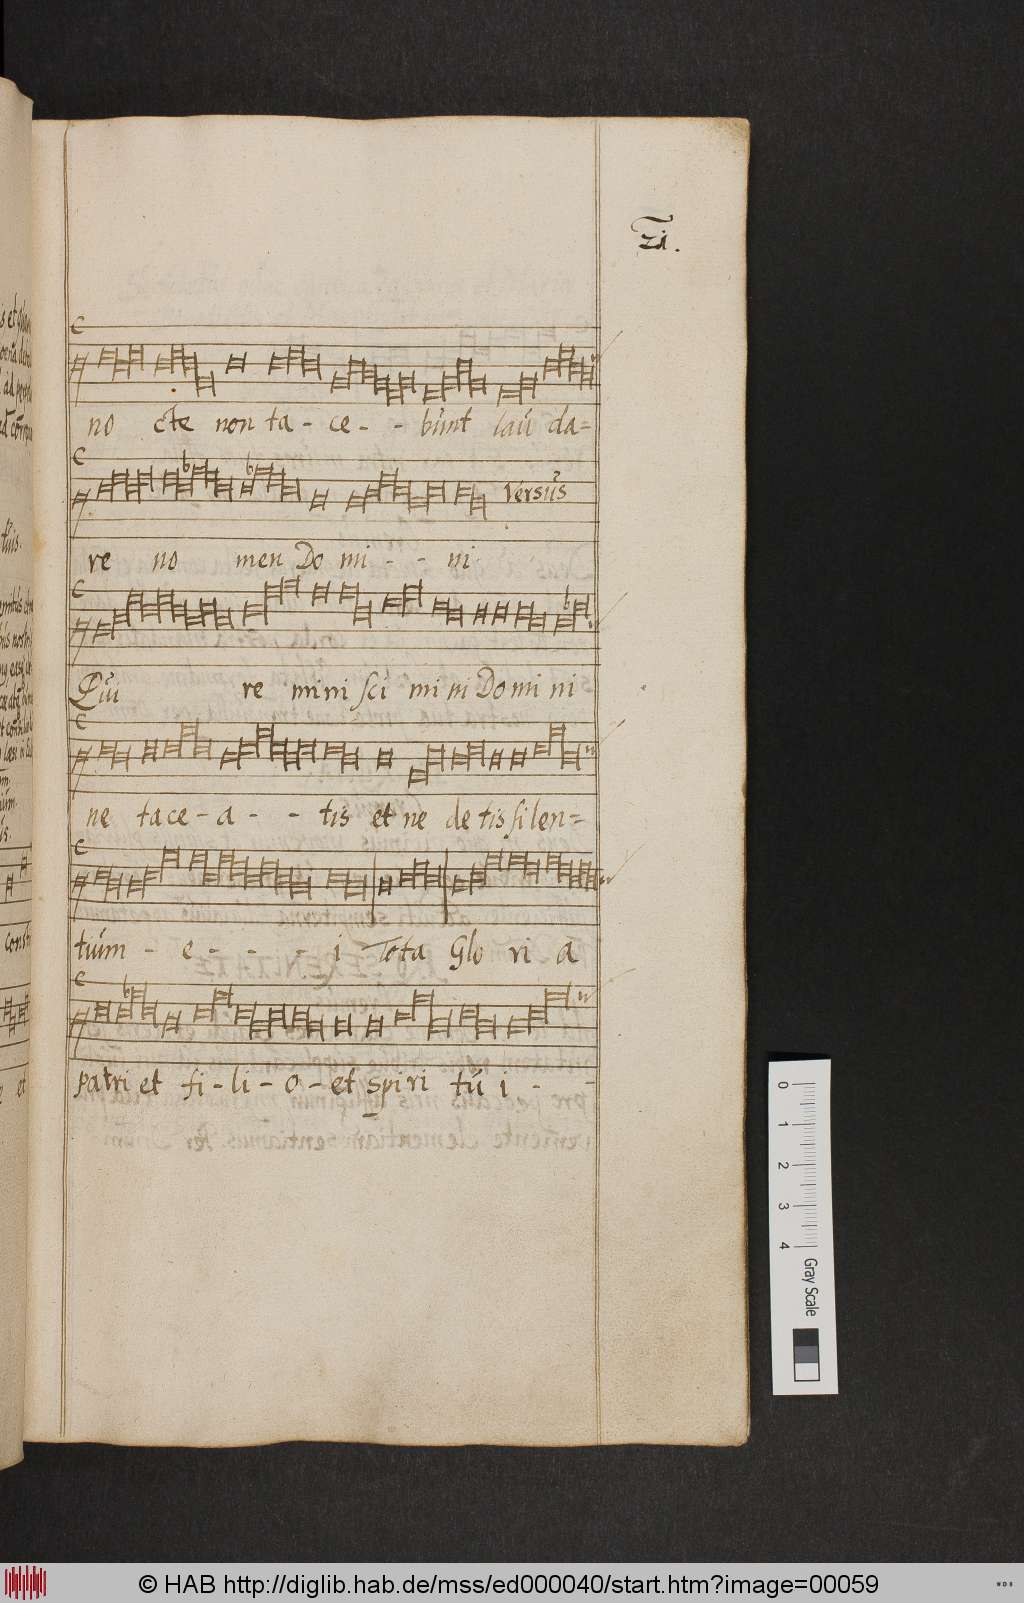 21.
no cte non ta - ce - - bunt lau da=
Versus
re no men Do mi - ni
Qui re mini sci mi ni Do mi ni
ne tace - a - - tis et ne de tis silen=
tium - e - - - i Tota Glo ri a
patri et fi - li - o - et spi ri tu i - -
0 1 2 3 4 Gray Scale
© HAB http://diglib.hab.de/mss/ed000040/start.htm?image=00059